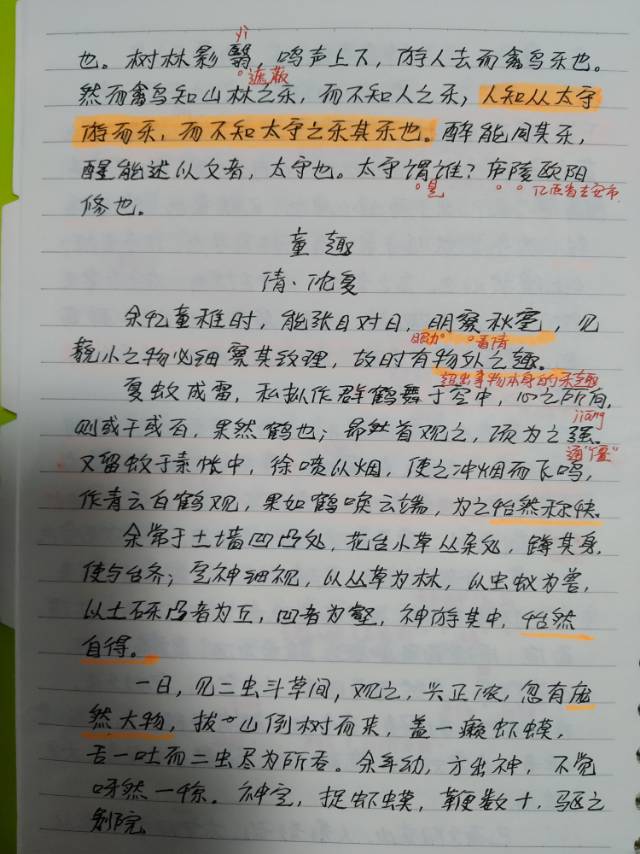 yì
也。树林影翳，鸣声上下，游人去而禽鸟乐也。
遮蔽
然而禽鸟知山林之乐，而不知人之乐；人知从太守
游而乐，而不知太守之乐其乐也。醉能同其乐，
醒能述以文者，太守也。太守谓谁？庐陵欧阳
是
修也。
童趣
清·沈复
余忆童稚时，能张目对日，明察秋毫，见
眼力
看清
藐小之物必细察其纹理，故时有物外之趣。
超出事物本身的乐趣
夏蚊成雷，私拟作群鹤舞于空中，心之所向，
则或千或百，果然鹤也；昂然首观之，项为之强。
jiāng
通"僵"
又留蚊于素帐中，徐喷以烟，使之冲烟而飞鸣，
作青云白鹤观，果如鹤唳云端，为之怡然称快。
余常于土墙凹凸处，花台小草丛杂处，蹲其身，
使与台齐；定神细视，以丛草为林，以虫蚁为兽，
以土砾凸者为丘，凹者为壑，神游其中，怡然
自得。
一日，见二虫斗草间，观之，兴正浓，忽有庞
然大物，拔山倒树而来，盖一癞虾蟆，
舌一吐而二虫尽为所吞。余年幼，方出神，不觉
呀然一惊。神定，捉虾蟆，鞭数十，驱之
别院。